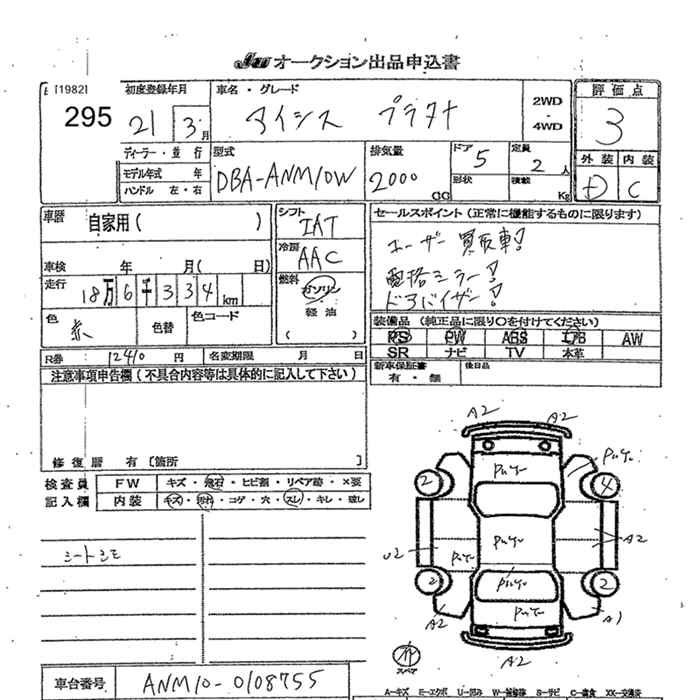 JU オークション出品申込書
[1982]
295
初度登録年月
21 3月
車名・グレード
アイシス プラタナ
2WD
・
4WD
評価点
3
ディーラー・並行
モデル年式 年
ハンドル 左・右
型式
DBA-ANM10W
排気量
2000 CC
ドア 5
形状
定員 2 人
積載 Kg
外装 内装
D C
車歴 自家用( )
シフト IAT
冷房 AAC
燃料
ガソリン
軽油
( )
車検 年 月( 日)
走行 18万6千334km
色 赤
色替
色コード
セールスポイント(正常に機能するものに限ります)
ユーザー買取車!
電格ミラー!
ドアバイザー!
装備品(純正品に限り○を付けてください)
PS PW ABS エアB AW
SR ナビ TV 本革
R券 12410 円 名変期限 月 日
新車保証書
有・無
後日品
注意事項申告欄(不具合内容等は具体的に記入して下さい)
修復歴 有 〔箇所 〕
検査員
記入欄
FW キズ・飛石・ヒビ割・リペア跡・×要
内装 キズ・汚れ・コゲ・穴・スレ・キレ・破し
シートシミ
A2 A2
2 4
U2 A2
2 2
A2 A1
A2
スペア
車台番号 ANM10-0108755
A-キズ E-エクボ U-凹み W-補修跡 S-サビ C-腐食 XX-交換済